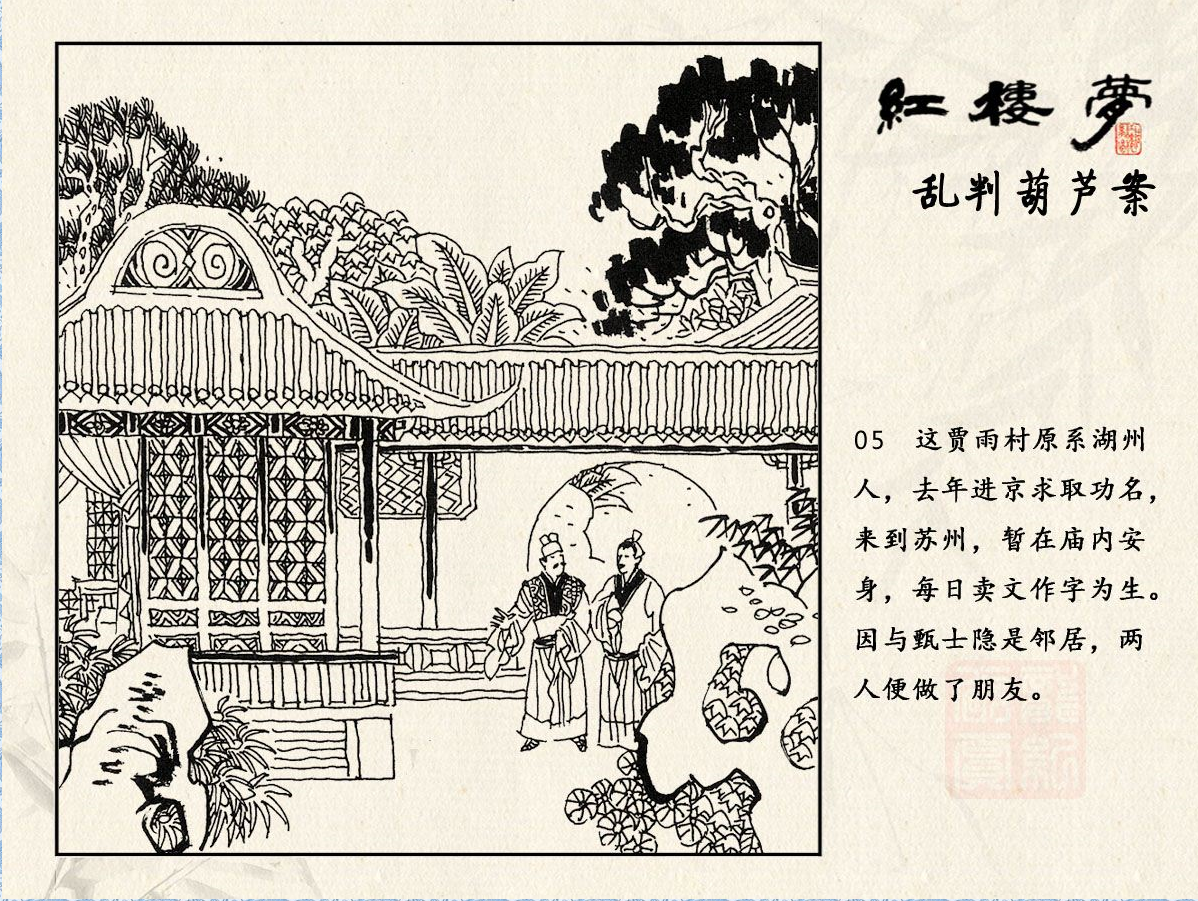 紅楼夢
乱判葫芦案
05 这贾雨村原系湖州
人，去年进京求取功名，
来到苏州，暂在庙内安
身，每日卖文作字为生。
因与甄士隐是邻居，两
人便做了朋友。